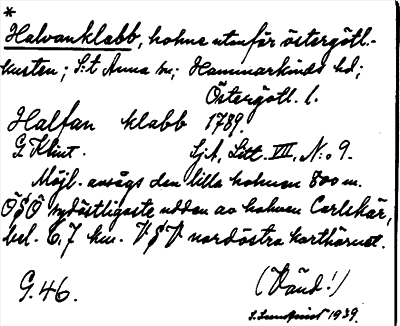 *
Halvanklabb, holme utanför östergötl.-
kusten; S:t Anna sn; Hammarkinds hd;
Östergötl. l.
Halfan klabb 1789.
G. Klint. Sj A, Litt. VII, N:o 9.
Möjl. avsågs den lilla holmen 800 m.
ÖSÖ sydöstligaste udden av holmen Carlskär,
bel. 6,7 km. VSV nordöstra karthörnet.
G. 46. (Vänd!)
1939.